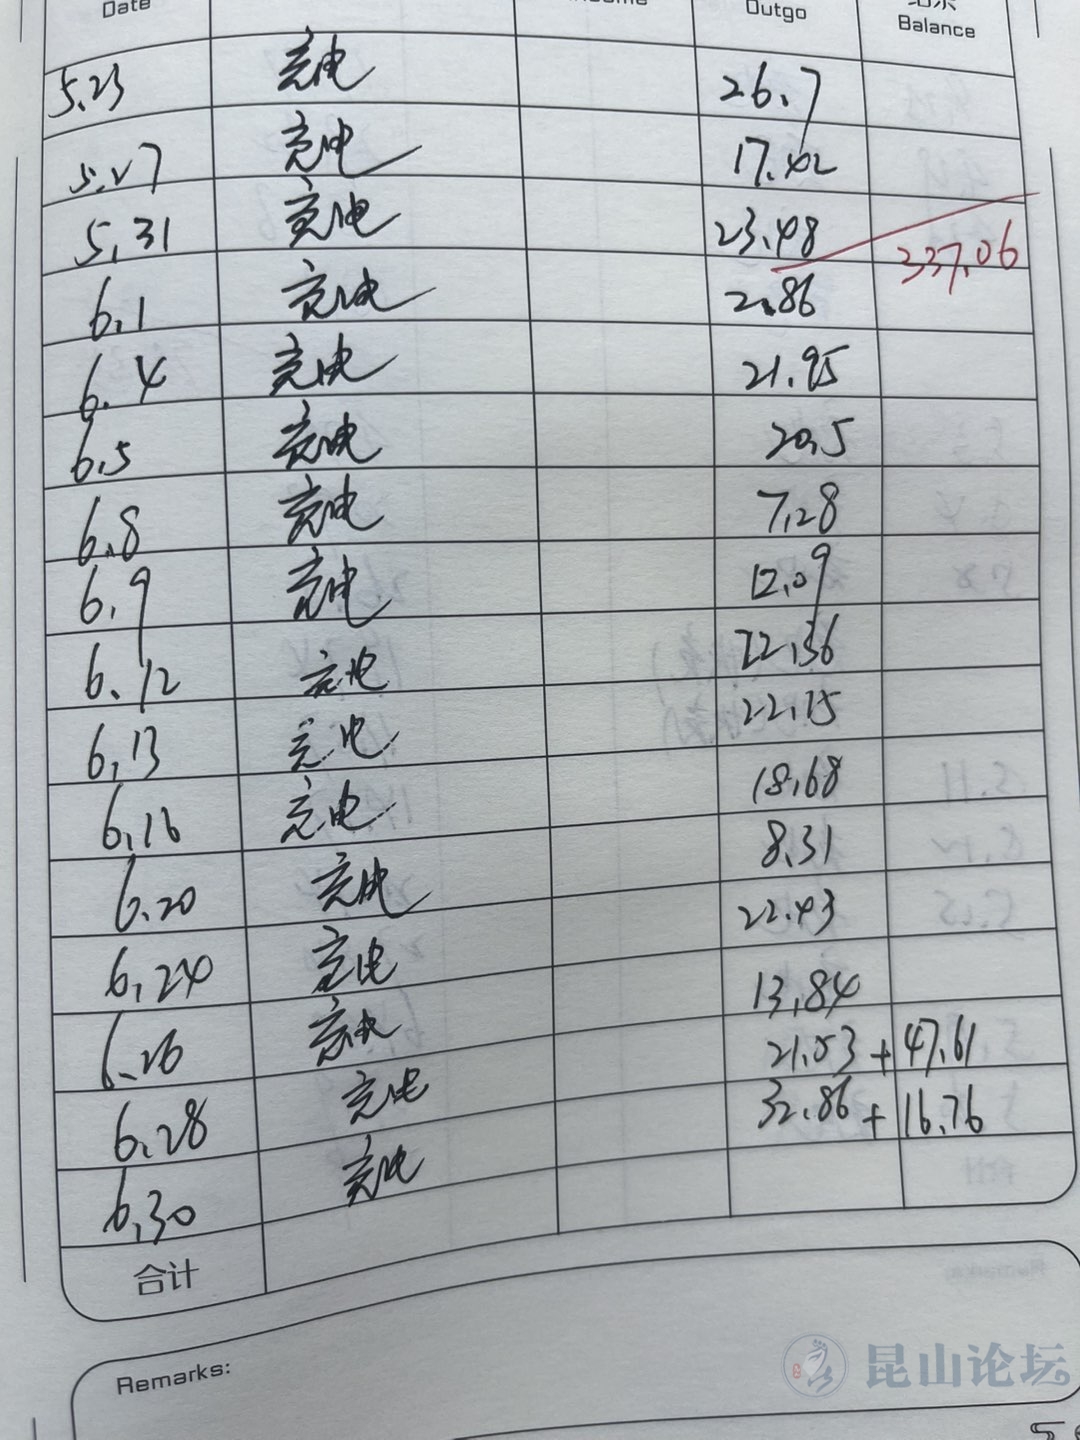 Date Outgo 结余 Balance
5.23 充电 26.7
5.27 充电 17.42
5.31 充电 23.48 237.06
6.1 充电 2.86
6.4 充电 21.95
6.5 充电 20.5
6.8 充电 7.28
6.9 充电 12.09
6.12 充电 22.36
6.13 充电 22.15
6.16 充电 18.68
6.20 充电 8.31
6.24 充电 22.43
6.26 充电 13.84
6.28 充电 21.53 + 47.61
6.30 充电 32.86 + 16.76
合计
Remarks:
昆山论坛